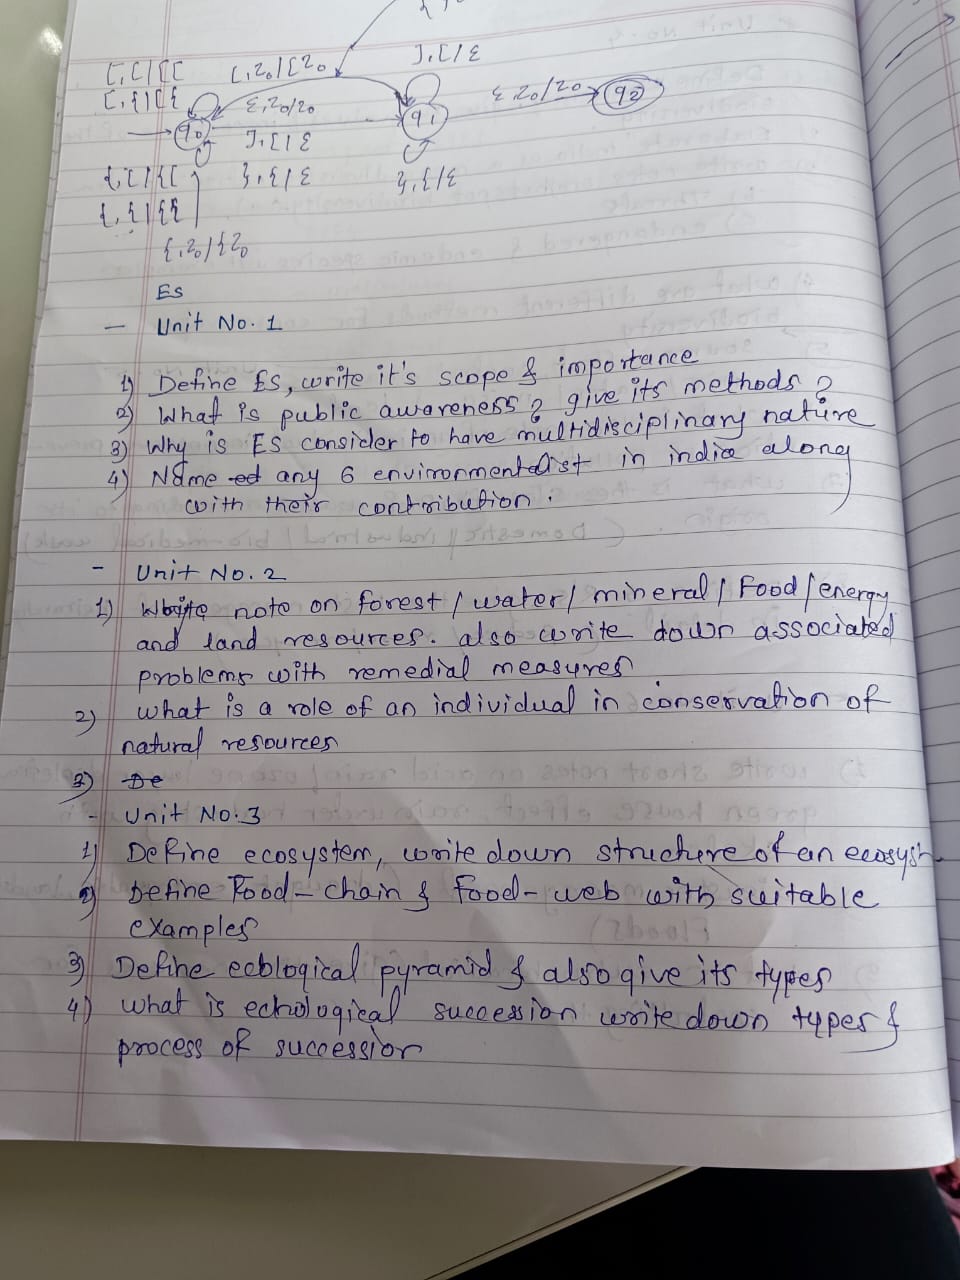 [,[/[[
[,z₀/[z₀
],[/ε
[,{/[{
ε,z₀/z₀
ε z₀/z₀
q₀
q₁
q₂
],[/ε
{,[/{[
},{/ε
},{/ε
{,{/{{
{,z₀/{z₀
Es
- Unit No. 1
1) Define Es, write it's scope & importance
2) What is public awareness? give its methods?
3) Why is ES consider to have multidisciplinary nature
4) Name any 6 environmentalist in india along
with their contribution.
- Unit No. 2
1) Write note on forest / water / mineral / Food / energy
and land resources. also write down associated
problems with remedial measures
2) what is a role of an individual in conservation of
natural resources
3) De
- Unit No. 3
1) Define ecosystem, write down structure of an ecosyst.
2) Define Food-chain & food-web with suitable
examples
3) Define ecological pyramid & also give its types
4) what is echological succession write down types &
process of succession